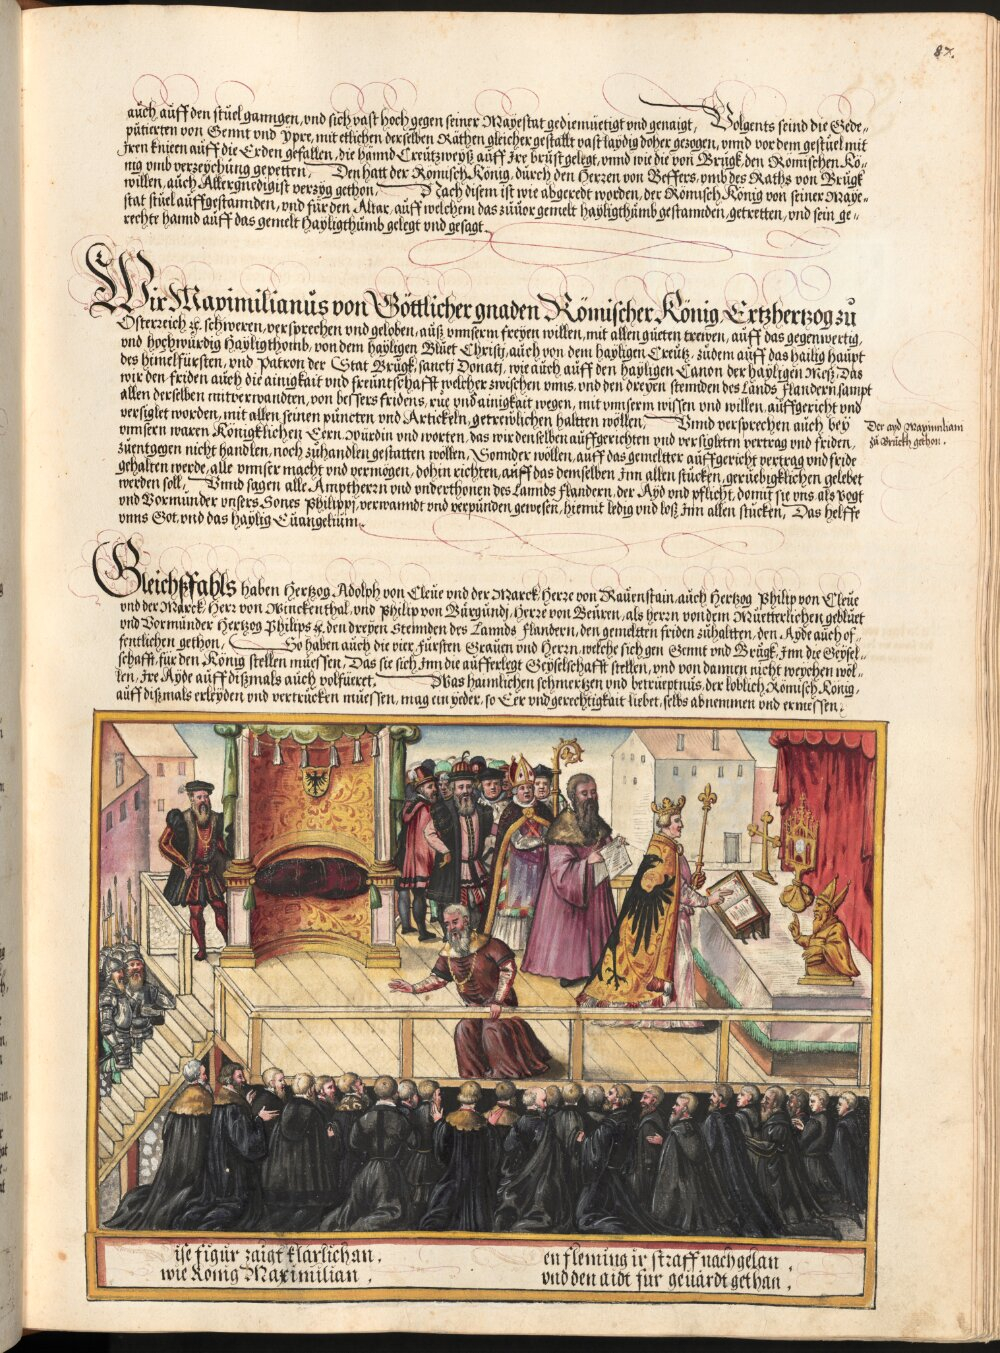 87.
auch auff den stuel ganngen, und sich vast hoch gegen seiner Mayestat gediemüetigt und genaigt, Volgents seind die Gede„
putierten von Gennt und Ypre, mit etlichen derselben Räthen gleicher gestallt vast laydig doher gezogen, unnd vor dem gestüel mit
Jren knieen auff die Erden gefallen, die hannd Creützweyß auff Jre brust gelegt, unnd wie die von Brugk den Römischen Kö„
nig umb verzeychung gepetten, Den hatt der Römisch König, durch den Herzen von Beffers, umb des Raths von Brugk
willen, auch Allergnedigist verzyg gethon. Nach disem ist wie abgeredt worden, der Römisch König von seiner Maye„
stat stuel auffgestannden, und für den Altar, auff welchem das zuuor gemelt hayligthumb gestannden, getretten, und sein ge„
rechte hannd auff das gemelt Hayligthumb gelegt und gesagt.
Wir Maximilianus von Göttlicher gnaden Römischer König Ertzhertzog zu
Österreich ꝛc. schweren, versprechen und geloben, auß unnserm freyen willen, mit allen gueten trewen, auff das gegenwertig,
und hochwürdig Hayligthomb, von dem hayligen Bluet Christj, auch von dem hayligen Creütz, zudem auff das hailig haupt
des himelfürsten, und Patron der Stat Brugk, sanctj Donatj, wie auch auff den hayligen Canon der hayligen Meß, Das
wir den friden auch die ainigkait und freuntschafft welcher zwischen unns, und den dreyen stennden des Lands flandern, sampt
allen derselben mitverwandten, von bessers fridens, rue und ainigkait wegen, mit unnserm wissen und willen, auffgericht und
versiglet worden, mit allen seinen puncten und Artickeln, getrewlichen haltten wöllen, Unnd versprechen auch bey
unnsern waren Königklichen Eern, würdin und worten, das wir denselben auffgerichten und versigleten vertrag und friden,
zuentgegen nicht handlen, noch zuhandlen gestatten wöllen, Sonnder wöllen, auff das gemeltter auffgericht vertrag und fride
gehalten werde, alle unnser macht und vermögen, dohin richten, auff das demselben Jnn allen stücken, geruebigklichen gelebet
werden soll, Unnd sagen alle Amptherrn und underthonen des Lannds flandern, der Ayd und pflicht, domit sie uns als Vogt
und Vormunder unsers Sones Philippj, verwanndt und verpunden gewesen, hiemit ledig und loß Jnn allen stucken, Das helffe
unns Got, und das haylig Euangelium.
Der ayd Maximiliani
zu Bruckh gethon.
Gleichßfahls haben Hertzog Adolph von Cleue und der Marck Herre von Rauenstain, auch Hertzog Philip von Cleue
und der Marck Herr von Winckenthal, und Philip von Burgundj, Herre von Beuren, als herrn von dem Müetterlichen gebluet
und Vormunder Hertzog Philips ꝛc. den dreyen Stennden des Lannds flandern, den gemeltten friden zuhaltten, den Ayde auch of„
fentlichen gethon, So haben auch die vier fürsten Grauen und Herrn, welche sich gen Gennt und Brugk, Jnn die Geysel„
schafft für den König stellen muessen, Das sie sich Jnn die aufferlegt Geyselschafft stellen, und von dannen nicht weychen wöl„
len, Jre Ayde auff dißmals auch volfueret. Was haimlichen schmertzen und betrueptnus, der loblich Römisch König,
auff dißmals erleyden und vertrucken muessen, mag ein yeder, so Eer und gerechtigkait liebet, selbs abnemmen und ermessen.
ise figur zaigt klarlich an,
wie König Maximilian,
en fleming ir straff nachgelan,
und den aidt fur geuardt gethan,